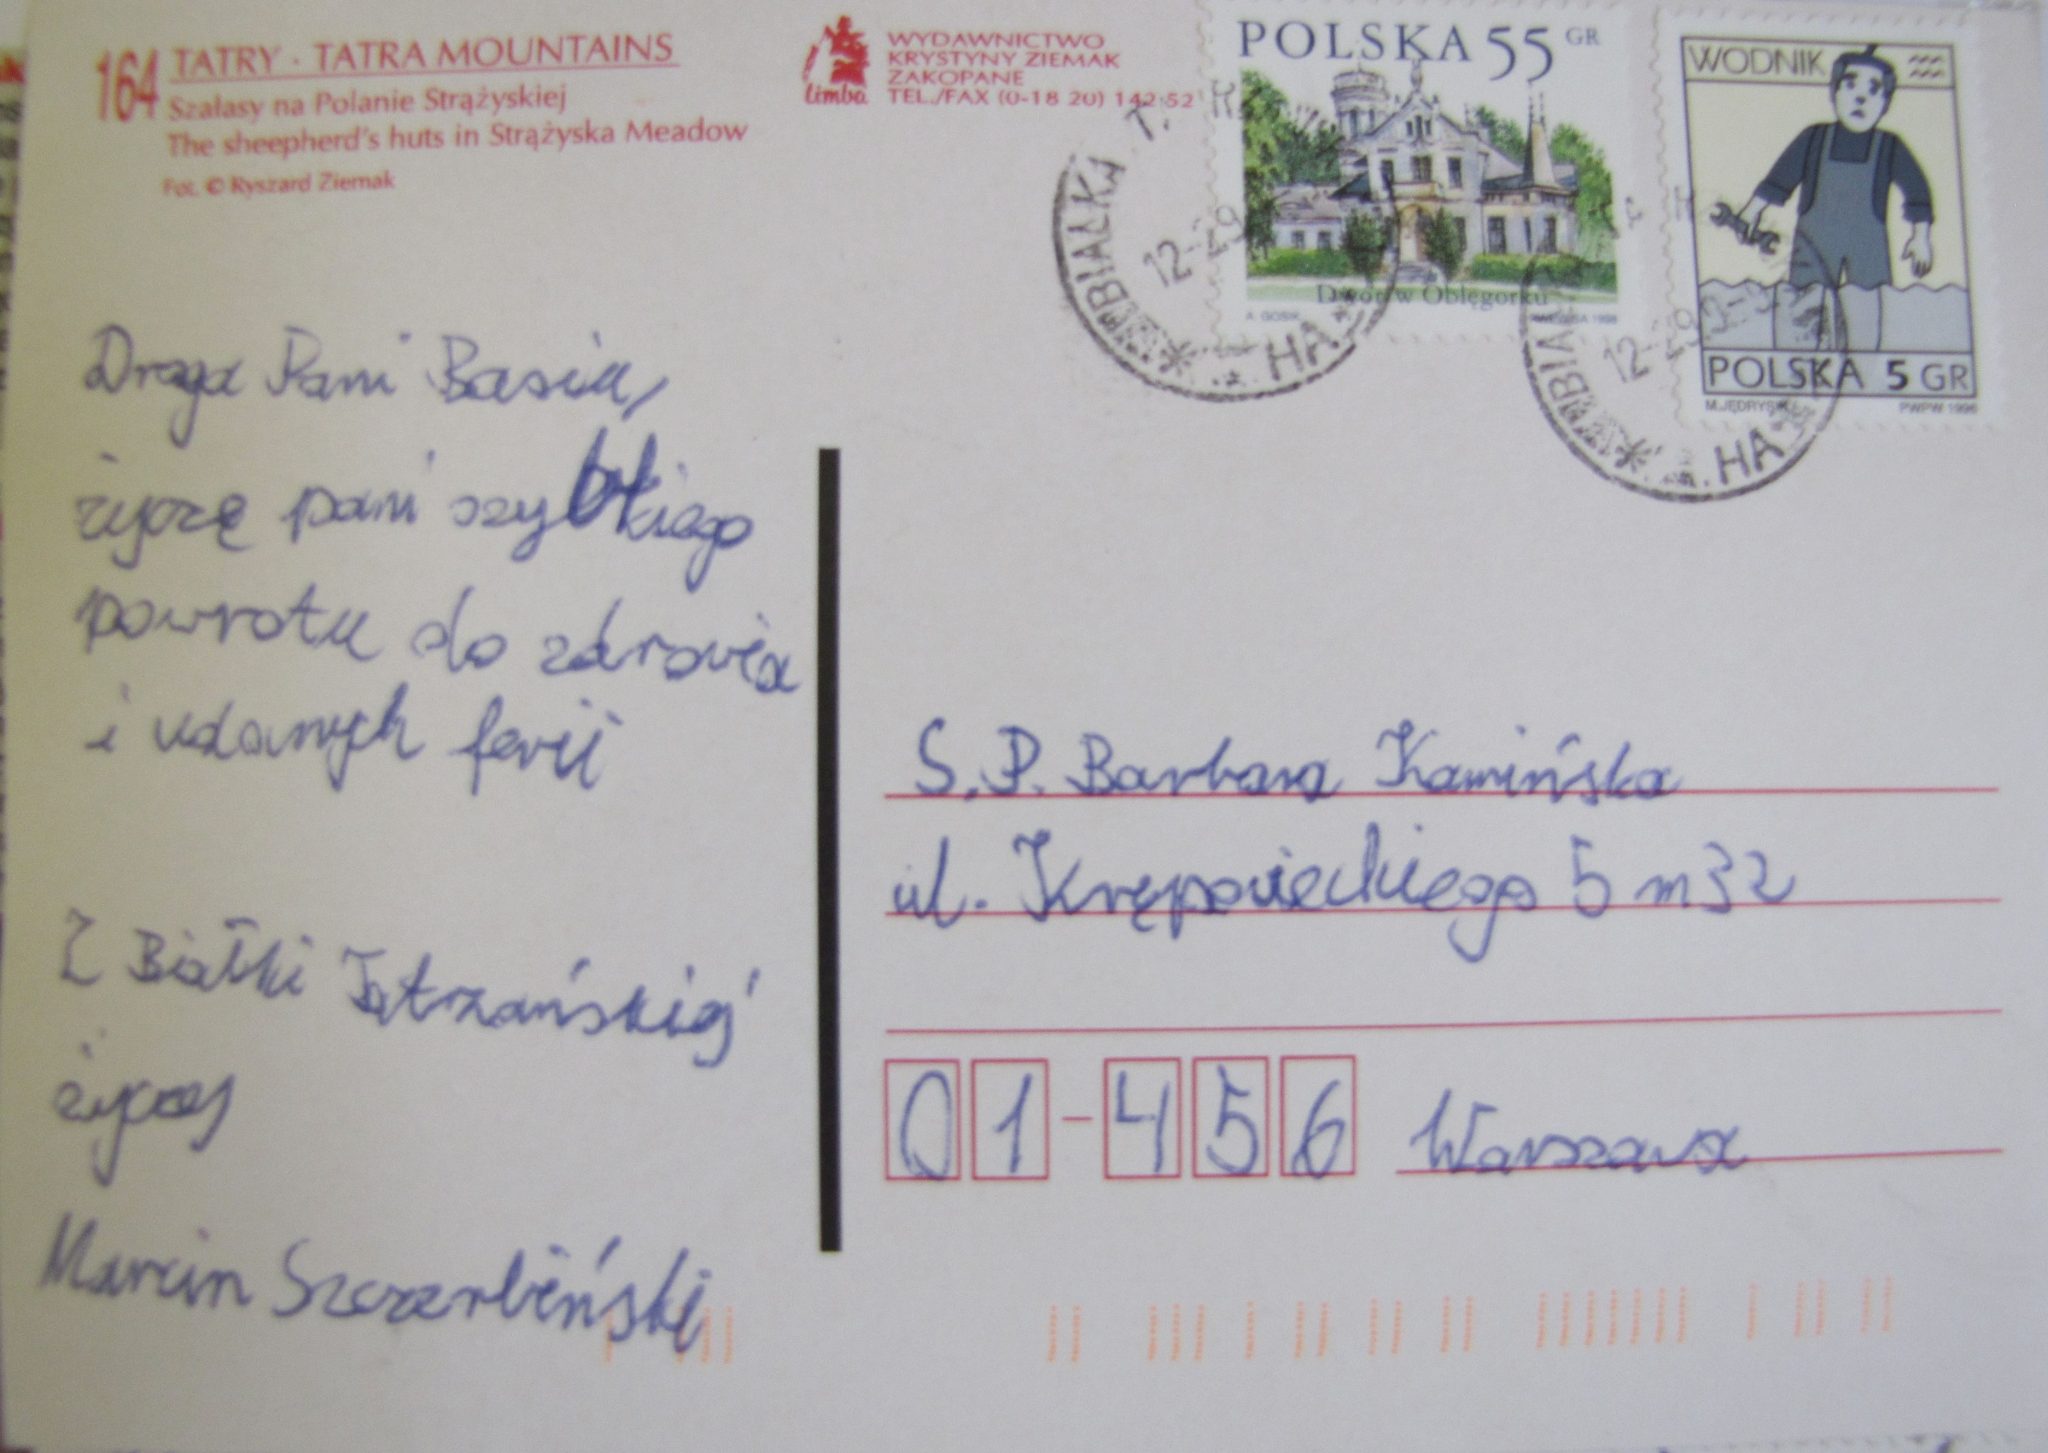 164 TATRY · TATRA MOUNTAINS
Szałasy na Polanie Strążyskiej
The sheepherd's huts in Strążyska Meadow
Fot. © Ryszard Ziemak
limba
WYDAWNICTWO
KRYSTYNY ZIEMAK
ZAKOPANE
TEL./FAX (0-18 20) 142 52
POLSKA 55 GR
Dwór w Oblęgorku
A. GOSIK
1998
WODNIK
POLSKA 5 GR
PWPW 1996
BIAŁKA T.
12-
HA
12-
HA
Droga Pani Basiu,
życzę pani szybkiego
powrotu do zdrowia
i udanych ferii
Z Białki Tatrzańskiej
życzy
Marcin Szczerbiński
S.P. Barbara Kamińska
ul. Krępowieckiego 5 m 32
01-456 Warszawa